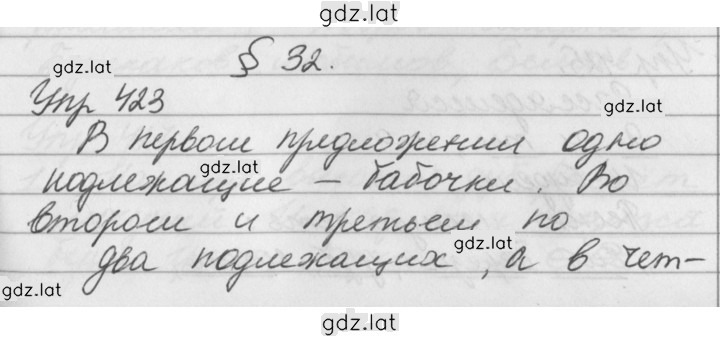 gdz.lat
gdz.lat
§ 32.
Упр 423
gdz.lat
В первом предложении одно
gdz.lat
подлежащие – бабочки. Во
втором и третьем по
gdz.lat
два подлежащих, а в чет-
gdz.lat
gdz.lat